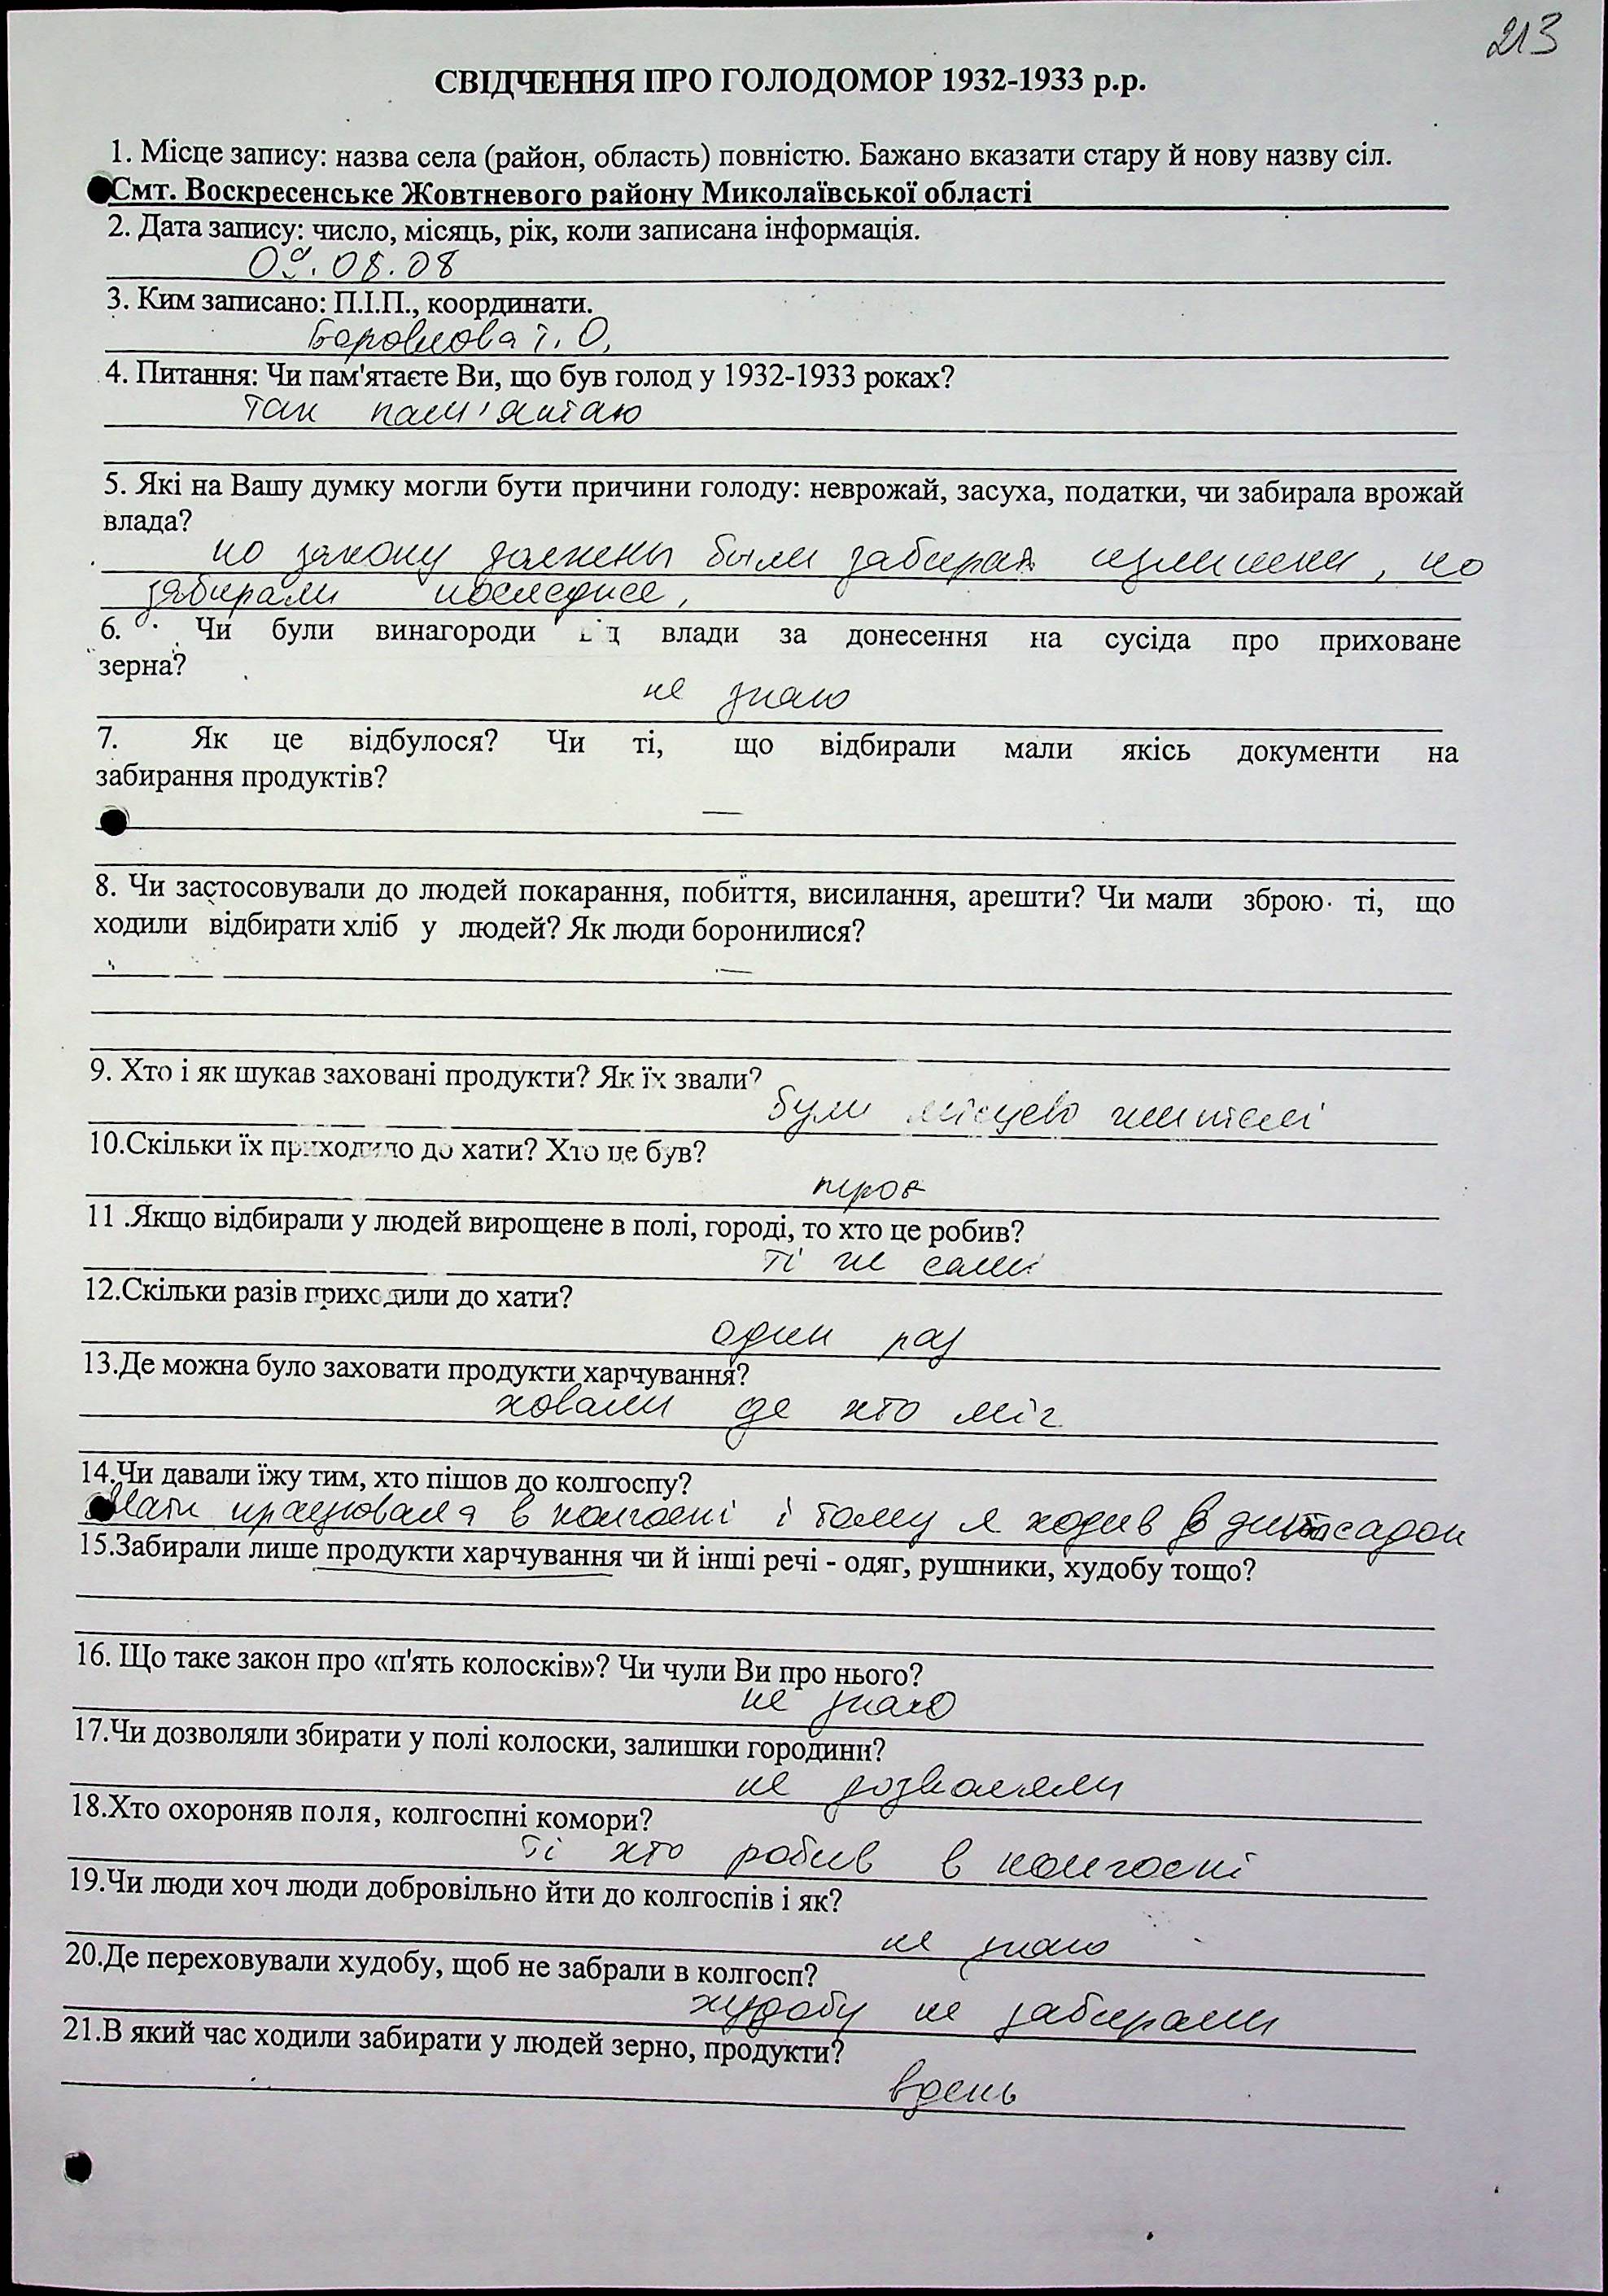 213
СВІДЧЕННЯ ПРО ГОЛОДОМОР 1932-1933 р.р.
1. Місце запису: назва села (район, область) повністю. Бажано вказати стару й нову назву сіл.
Смт. Воскресенське Жовтневого району Миколаївської області
2. Дата запису: число, місяць, рік, коли записана інформація.
09.08.08
3. Ким записано: П.І.П., координати.
Т. О.
4. Питання: Чи пам'ятаєте Ви, що був голод у 1932-1933 роках?
так пам'ятаю
5. Які на Вашу думку могли бути причини голоду: неврожай, засуха, податки, чи забирала врожай
влада?
по закону должены были забирать излишки, но
забирали последнее,
6. Чи були винагороди від влади за донесення на сусіда про приховане
зерна?
не знаю
7. Як це відбулося? Чи ті, що відбирали мали якісь документи на
забирання продуктів?
—
8. Чи застосовували до людей покарання, побиття, висилання, арешти? Чи мали зброю ті, що
ходили відбирати хліб у людей? Як люди боронилися?
—
9. Хто і як шукав заховані продукти? Як їх звали?
були місцеві жителі
10.Скільки їх приходило до хати? Хто це був?
троє
11 .Якщо відбирали у людей вирощене в полі, городі, то хто це робив?
ті же самі
12.Скільки разів приходили до хати?
один раз
13.Де можна було заховати продукти харчування?
ховали де хто міг
14.Чи давали їжу тим, хто пішов до колгоспу?
Мати працювала в колгоспі і тому я ходив в дитсадок
15.Забирали лише продукти харчування чи й інші речі - одяг, рушники, худобу тощо?
16. Що таке закон про «п'ять колосків»? Чи чули Ви про нього?
не знаю
17.Чи дозволяли збирати у полі колоски, залишки городини?
не дозволяли
18.Хто охороняв поля, колгоспні комори?
ті хто робив в колгоспі
19.Чи люди хоч люди добровільно йти до колгоспів і як?
не знаю
20.Де переховували худобу, щоб не забрали в колгосп?
худобу не забирали
21.В який час ходили забирати у людей зерно, продукти?
вдень